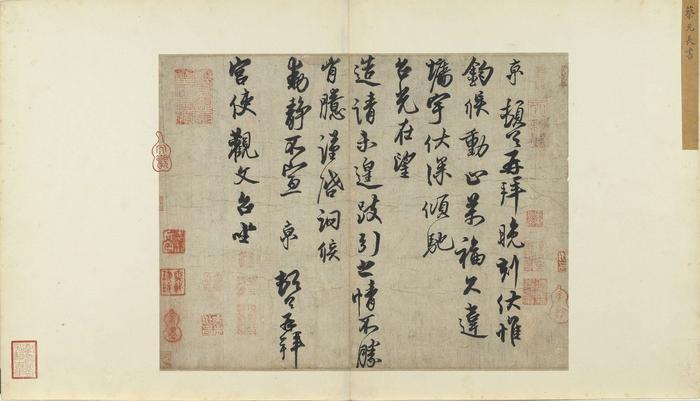 蔡元長書
京頓首再拜晚刻伏惟
鈞候動止萬福久違
牆宇伏深傾馳
台光在望
造請未遑跂引之情不勝
胷臆謹啓詗候
動靜不宣 京 頓首再拜
宮使觀文台坐